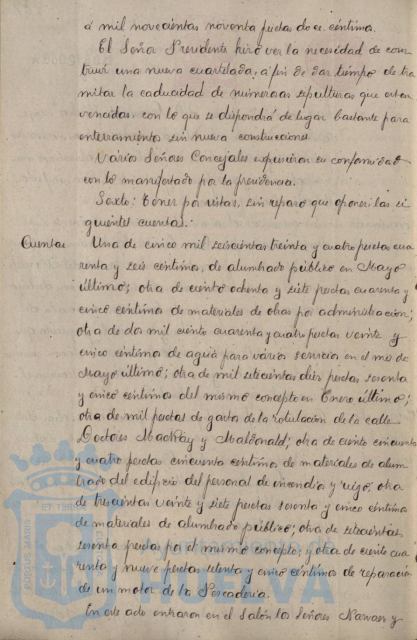 á mil novecientas noventa pesetas de ce. céntimo.
El Señor Presidente hizo ver la necesidad de cons
truir una nueva cuartelada, á fin de dar tiempo de tra
mitar la caducidad de numerosas sepulturas que estan
vencidas, con lo que se dispondrá de lugar bastante para
enterramientos sin nuevas construcciones.
Varios Señores Concejales expusieron su conformidad
con lo manifestado por la presidencia.
Sexto: Tener por vistas, sin reparo que oponer, las si
guientes cuentas:
Cuentas
Una de cinco mil seiscientas treinta y cuatro pesetas cua
renta y seis céntimos, de alumbrado público en Mayo
último; otra de ciento ochenta y siete pesetas cuarenta y
cinco céntimos de materiales de obras por administración;
otra de dos mil ciento cuarenta y cuatro pesetas veinte y
cinco céntimos de agua para varios servicios en el mes de
Mayo último; otra de mil setecientas diez pesetas sesenta
y cinco céntimos del mismo concepto en Enero último;
otra de mil pesetas de gastos de la rotulación de la calle
Doctores Mackay y Macdonald; otra de ciento cincuenta
y cuatro pesetas cincuenta céntimos de materiales de alum
brado del edificio del personal de incendios y riego; otra
de trescientas veinte y siete pesetas sesenta y cinco céntimos
de materiales de alumbrado público; otra de setecientas
sesenta pesetas por el mismo concepto; y otra de ciento cua
renta y nueve pesetas setenta y cinco céntimos de reparación
de un motor de la Pescadería.
En este acto entraron en el Salón los Señores Narvaez y
Ayuntamiento de
HUELVA